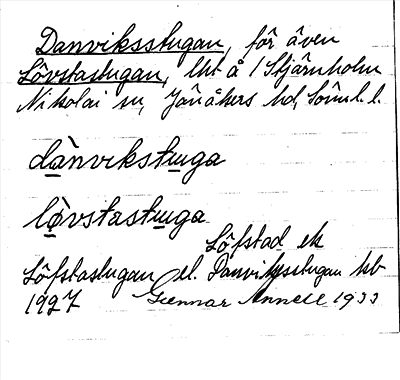 Danviksstugan, för även
Lövstastugan, lht å 1 Stjärnholm
Nikolai sn, Jönåkers hd, Söml. l.
dànvikstuga
lòvstastuga
Löfstad ek
Löfstastugan el. Danviksstugan kb
1927 Gunnar Annell 1933